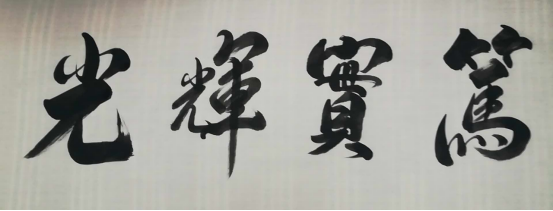 篤實輝光